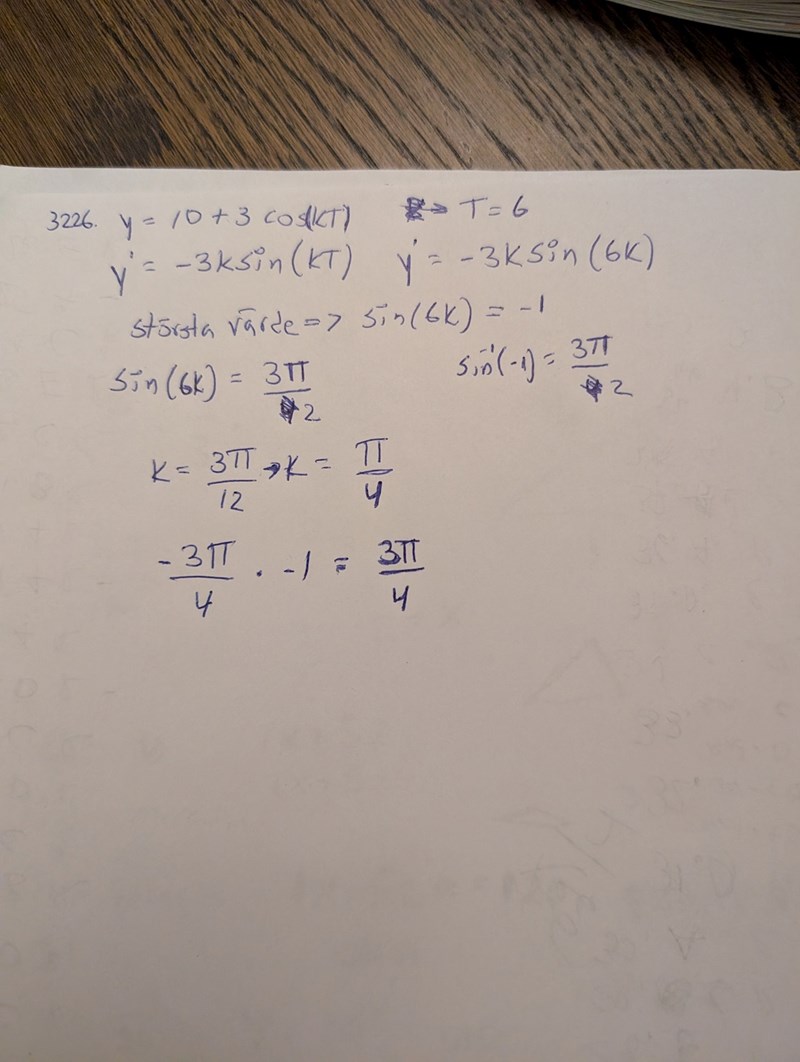 3226. y = 10 + 3 cos(KT) T = 6
y' = -3K sin(KT) y' = -3K sin(6K)
största värde => sin(6K) = -1
sin(6K) = 3π/2 sin⁻¹(-1) = 3π/2
K = 3π/12 → K = π/4
-3π/4 · -1 = 3π/4